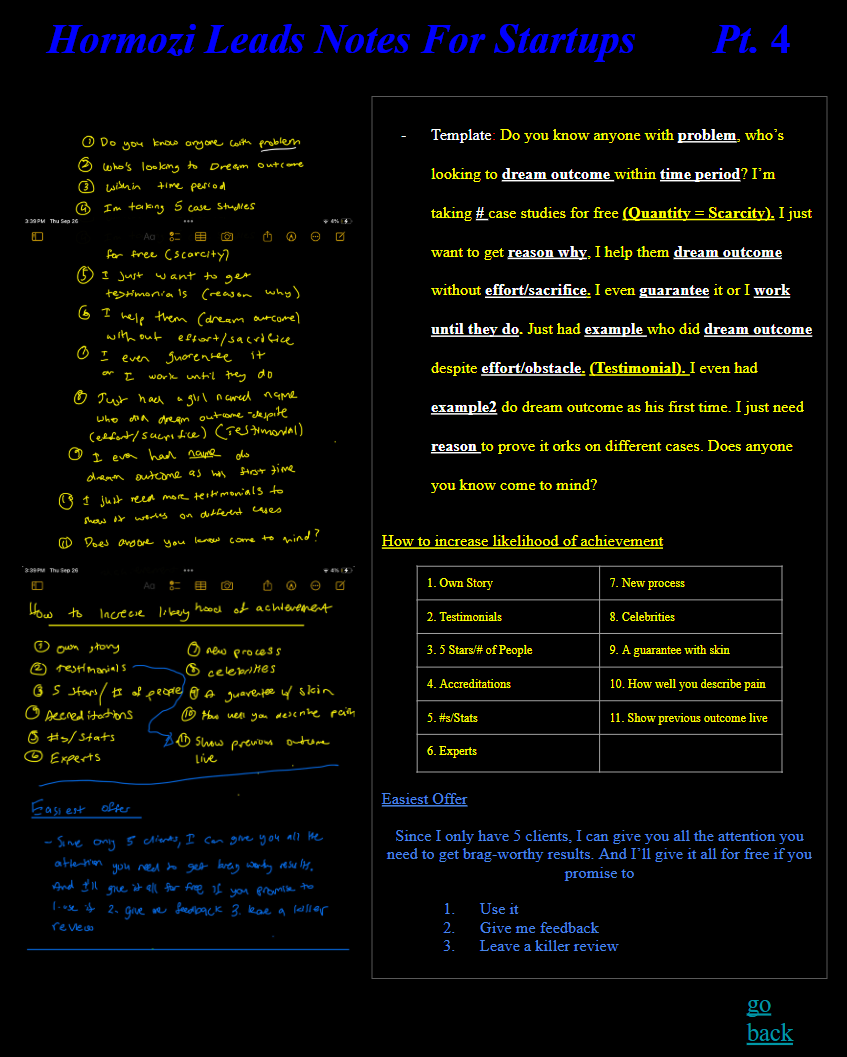 Hormozi Leads Notes For Startups Pt. 4
① Do you know anyone with problem
② who's looking to Dream outcome
③ within time period
④ Im taking 5 case studies
3:39 PM Thu Sep 26
4%
Aa
for free (scarcity)
⑤ I just want to get
testimonials (reason why)
⑥ I help them (dream outcome)
without effort/sacrifice
⑦ I even guarentee it
or I work until they do
⑧ Just had a girl named name
who did dream outcome despite
(effort/sacrifice) (Testimonial)
⑨ I even had name do
dream outcome as his first time
⑩ I just need more testimonials to
show it works on different cases
⑪ Does anyone you know come to mind?
3:39 PM Thu Sep 26
4%
Aa
How to Increase likely hood of achievement
① own story
② Testimonials
③ 5 stars/# of people
④ Accreditations
⑤ #s/stats
⑥ Experts
⑦ New process
⑧ celebrities
⑨ A guarantee w/ skin
⑩ How well you describe pain
⑪ Show previous outcome
live
Easiest offer
- Since only 5 clients, I can give you all the
attention you need to get brag worthy results.
And I'll give it all for free if you promise to
1. use it 2. give me feedback 3. leave a killer
review
- Template: Do you know anyone with problem, who’s
looking to dream outcome within time period? I’m
taking # case studies for free (Quantity = Scarcity). I just
want to get reason why, I help them dream outcome
without effort/sacrifice. I even guarantee it or I work
until they do. Just had example who did dream outcome
despite effort/obstacle. (Testimonial). I even had
example2 do dream outcome as his first time. I just need
reason to prove it orks on different cases. Does anyone
you know come to mind?
How to increase likelihood of achievement
1. Own Story
7. New process
2. Testimonials
8. Celebrities
3. 5 Stars/# of People
9. A guarantee with skin
4. Accreditations
10. How well you describe pain
5. #s/Stats
11. Show previous outcome live
6. Experts
Easiest Offer
Since I only have 5 clients, I can give you all the attention you
need to get brag-worthy results. And I’ll give it all for free if you
promise to
1. Use it
2. Give me feedback
3. Leave a killer review
go
back